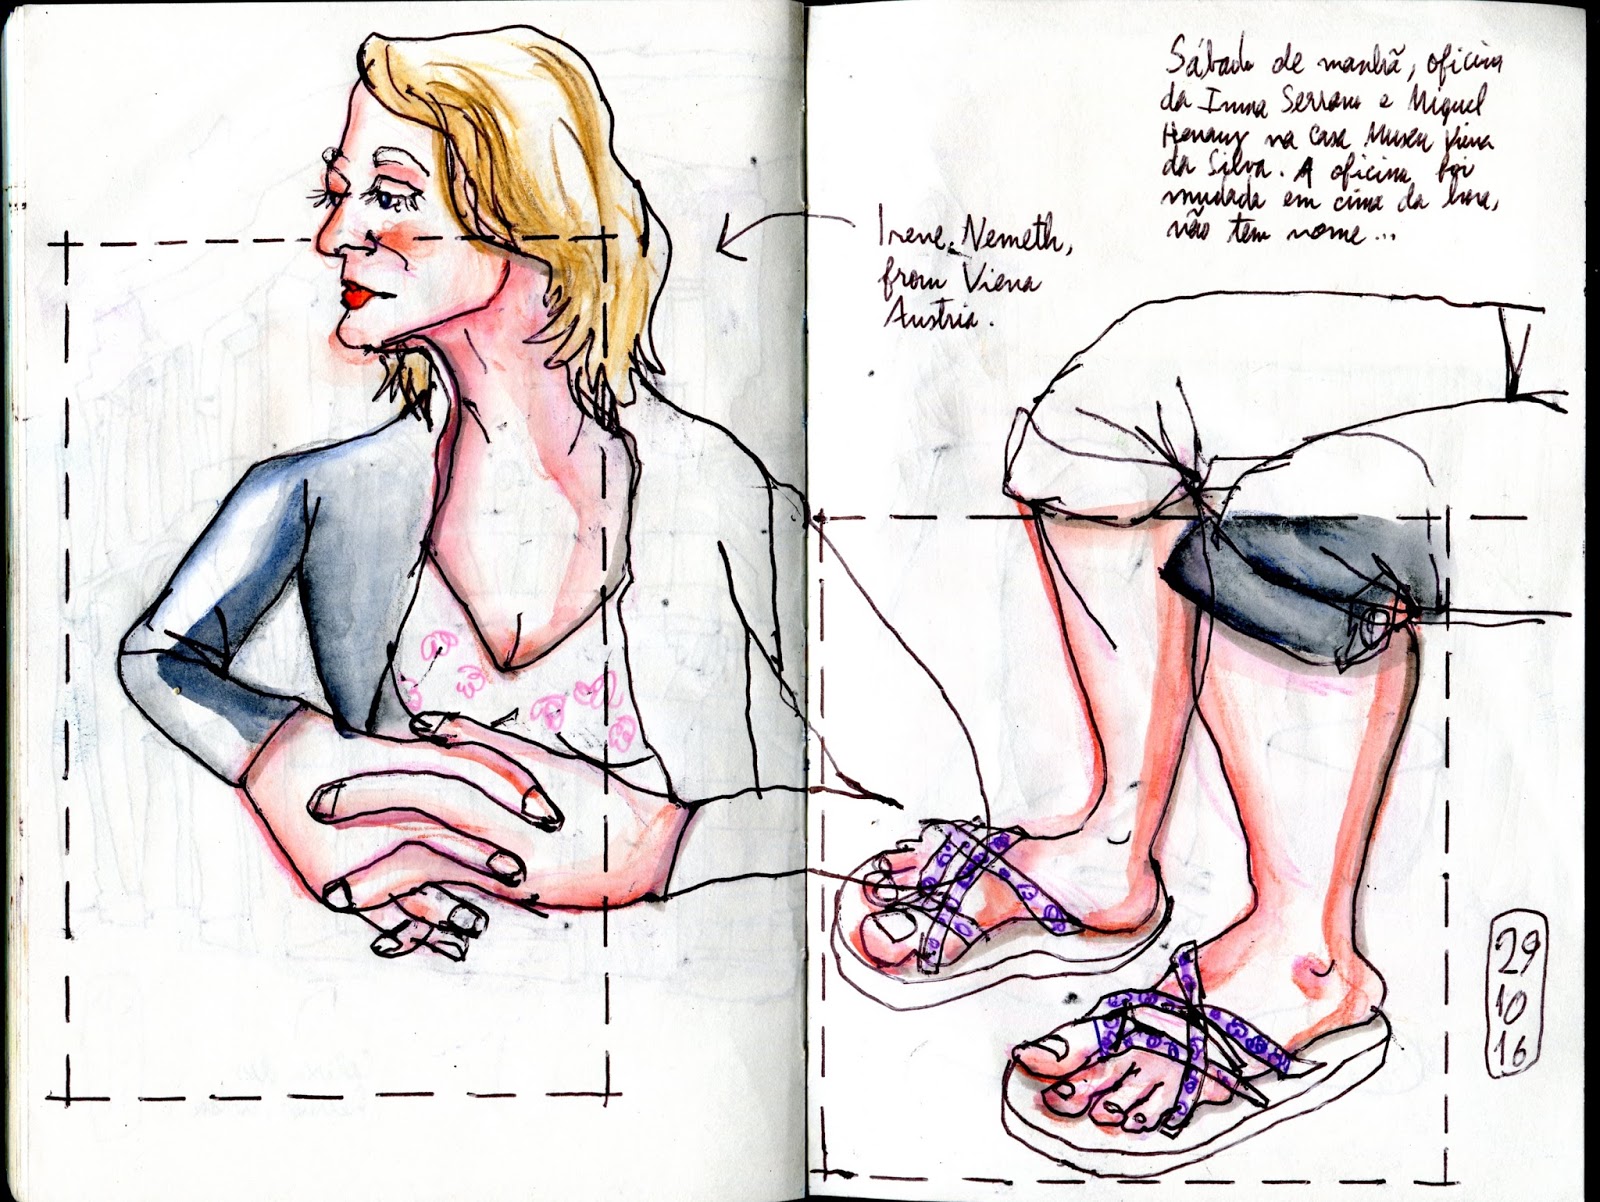 Sábado de manhã, oficina
da Inma Serrano e Miguel
Herranz na Casa Museu Vieira
da Silva. A oficina foi
mudada em cima da hora,
não tem nome...
Irene Nemeth,
from Viena
Austria.
29
10
16